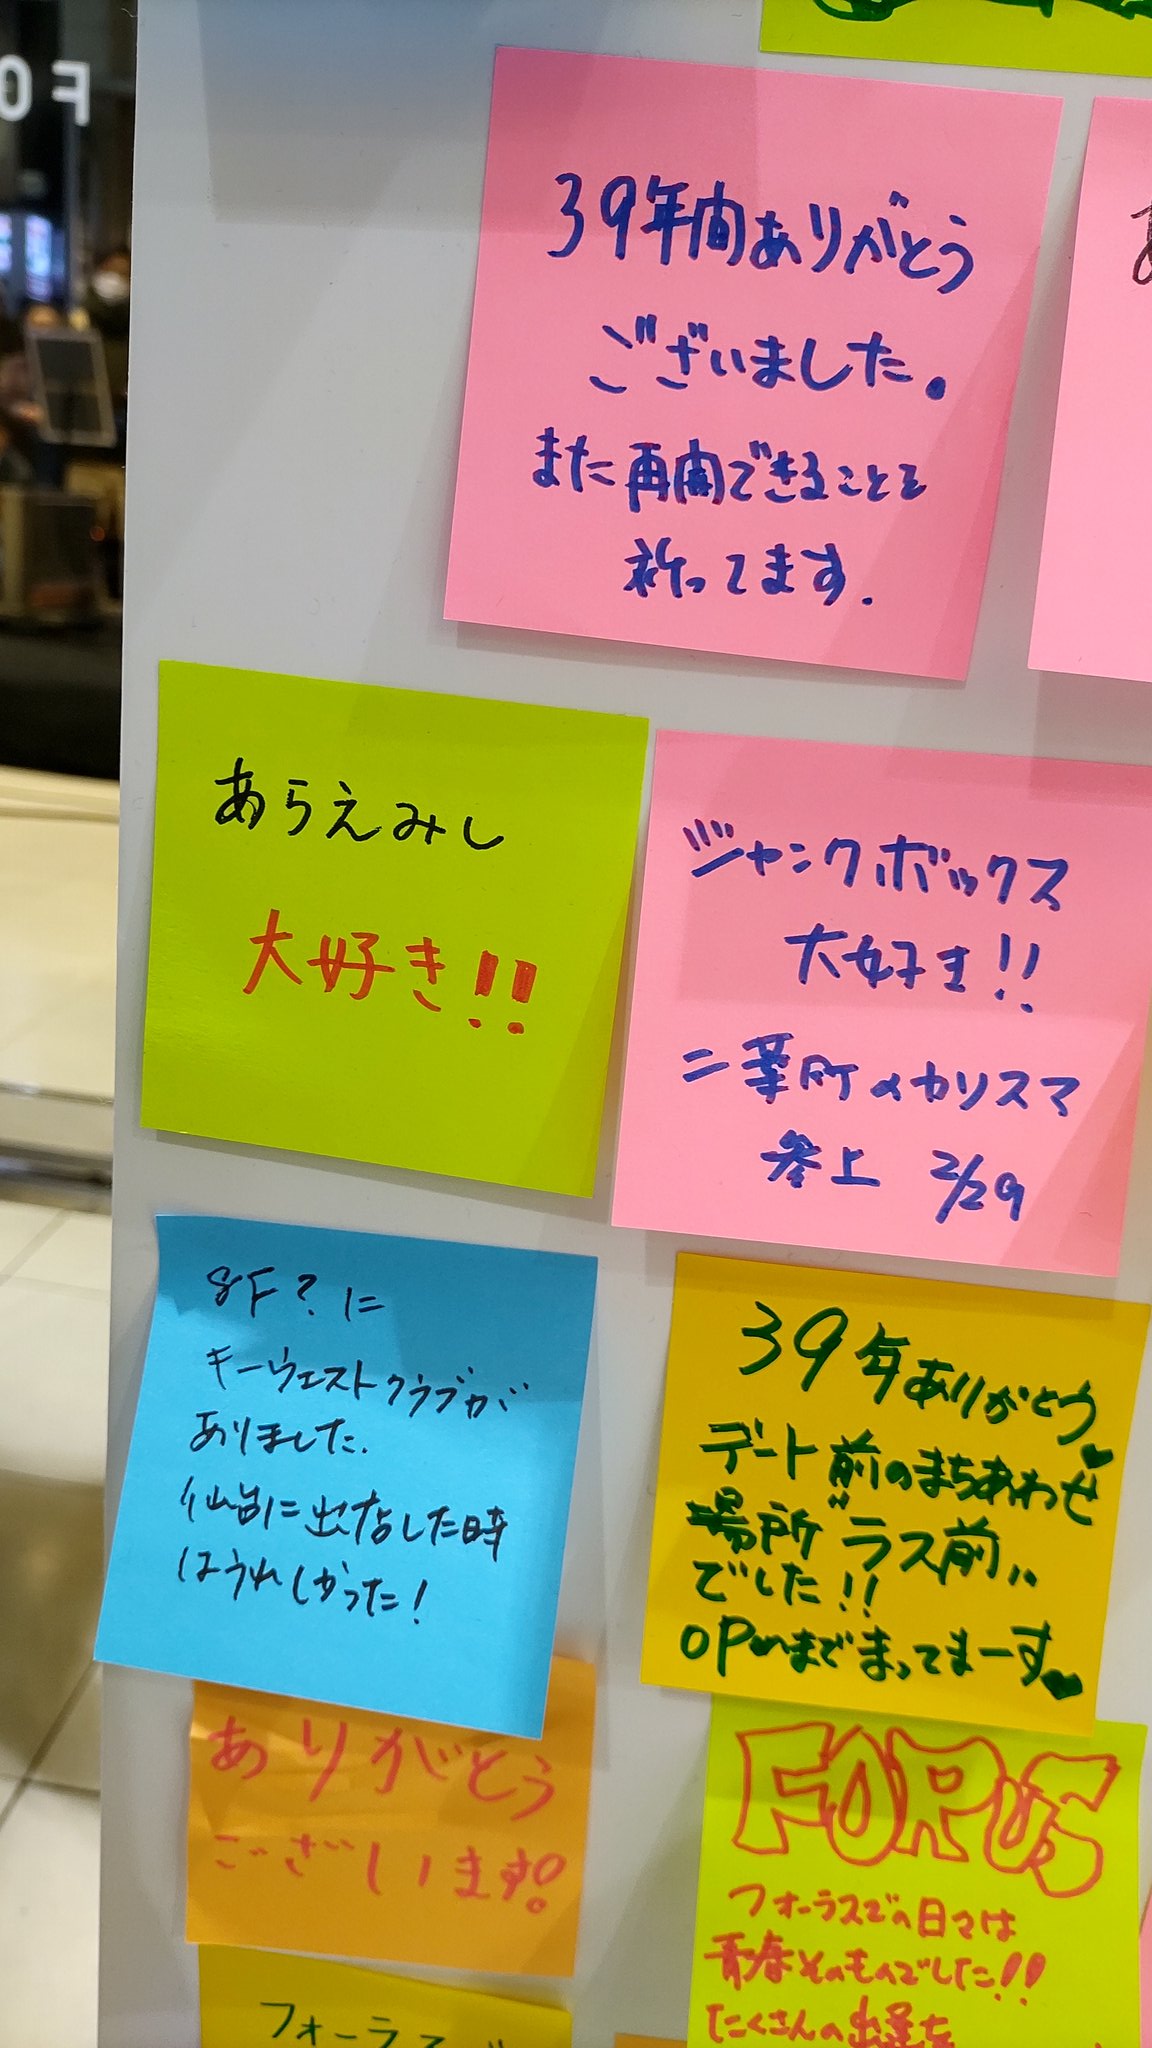 FO
39年間ありがとう
ございました。
また再開できることを
祈ってます.
あらえみし
大好き!!
ジャンクボックス
大好き!!
二業所のカリスマ
参上 2/29
8F?に
キーウエストクラブが
ありました.
仙台に出店した時
はうれしかった!
39年ありがとう♥
デート前のまちあわせ
場所"ラス前"
でした!!
OPenまでまってまーす♥
ありがとう
ございます!
FORUS
フォーラスでの日々は
青春そのものでした!!
たくさんの出逢を
フォーラスで